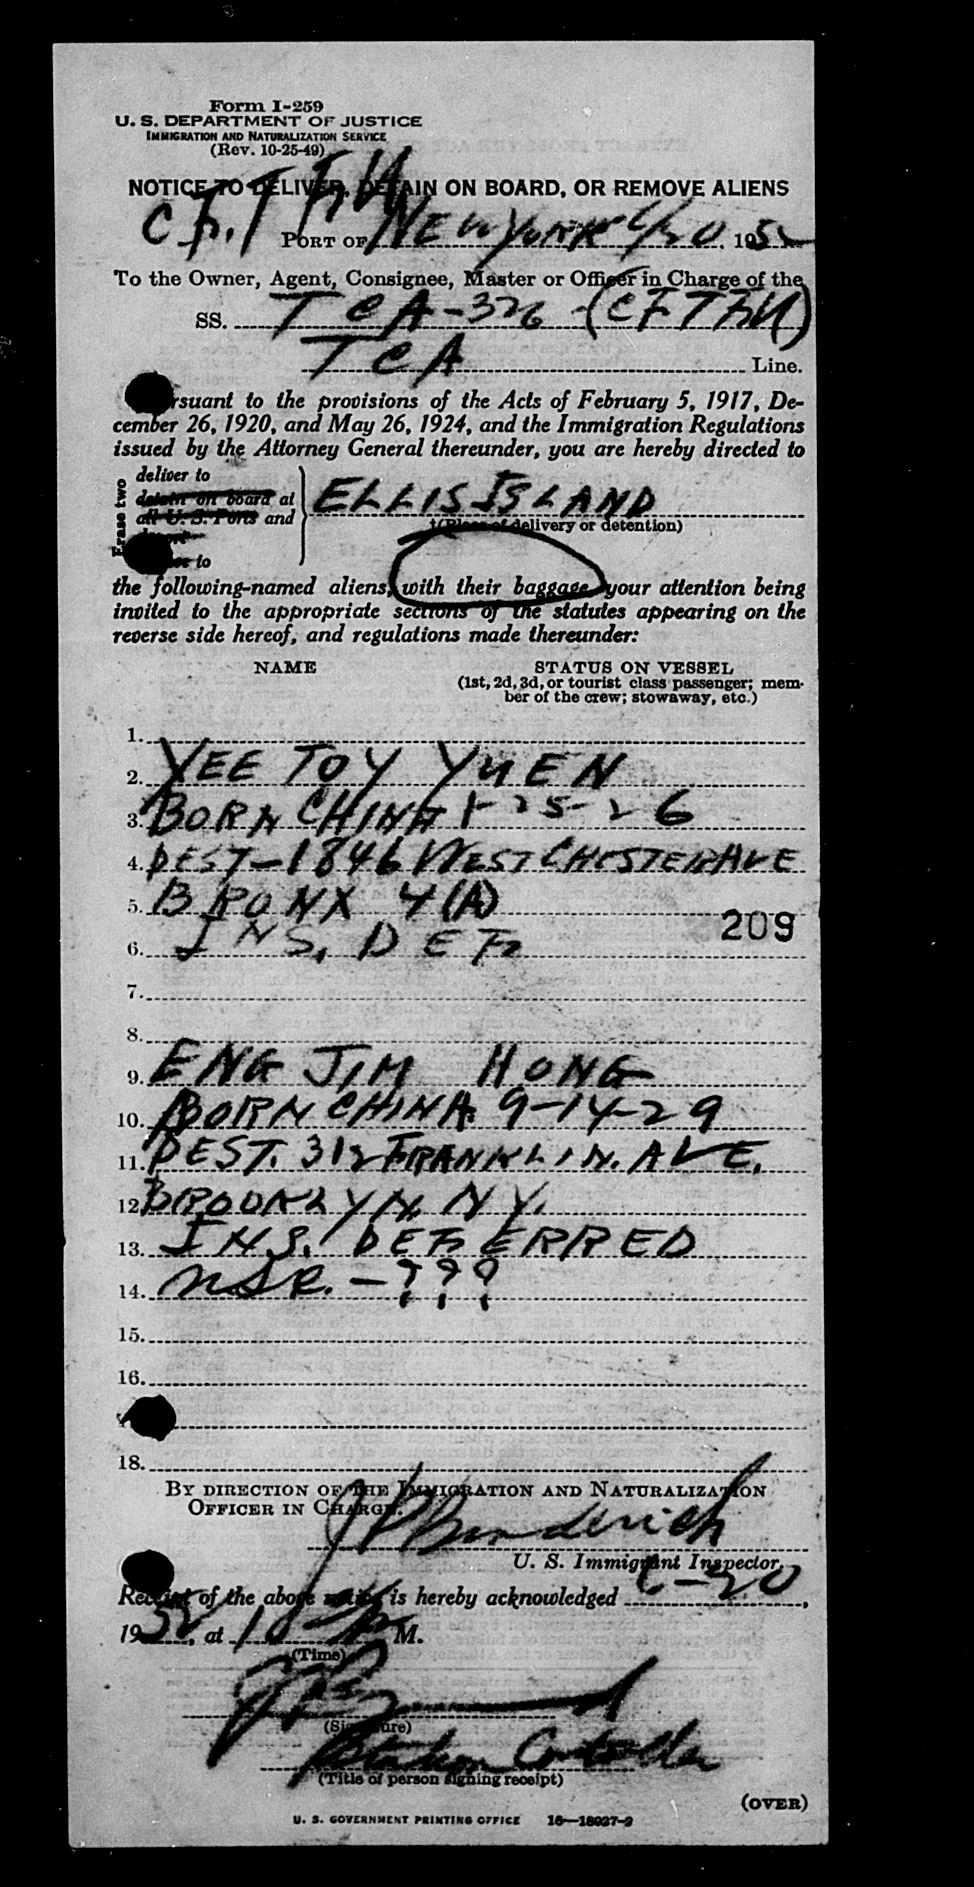 Form I-259
U. S. DEPARTMENT OF JUSTICE
IMMIGRATION AND NATURALIZATION SERVICE
(Rev. 10-25-49)
NOTICE TO DELIVER, DETAIN ON BOARD, OR REMOVE ALIENS
CF.TFU
PORT OF NEW YORK 6/20, 1952
To the Owner, Agent, Consignee, Master or Officer in Charge of the
SS. TCA-326 (CFTFU)
TCA Line.
rsuant to the provisions of the Acts of February 5, 1917, De-
cember 26, 1920, and May 26, 1924, and the Immigration Regulations
issued by the Attorney General thereunder, you are hereby directed to
Erase two
deliver to
detain on board at
all U. S. Ports and
to
ELLIS ISLAND
†(Place of delivery or detention)
the following-named aliens, with their baggage, your attention being
invited to the appropriate sections of the statutes appearing on the
reverse side hereof, and regulations made thereunder:
NAME STATUS ON VESSEL
(1st, 2d, 3d, or tourist class passenger; mem-
ber of the crew; stowaway, etc.)
1.
2. YEE TOY YUEN
3. BORN CHINA 1-25-26
4. DEST-1846 WESTCHESTER AVE
5. BRONX 4(A)
209
6. INS. DEF
7.
8.
9. ENG JIM HONG
10. BORN CHINA 9-14-29
11. DEST. 312 FRANKLIN. AVE.
12. BROOKLYN. N.Y.
13. INS. DEFERRED
14. NSR. - ???
15.
16.
18.
BY DIRECTION OF THE IMMIGRATION AND NATURALIZATION
OFFICER IN CHARGE.
U. S. Immigrant Inspector.
Receipt of the above notice is hereby acknowledged 6-20,
1952, at 10 M.
(Time)
(Signature)
Station Controller
(Title of person signing receipt)
(OVER)
U. S. GOVERNMENT PRINTING OFFICE 16—18027-2